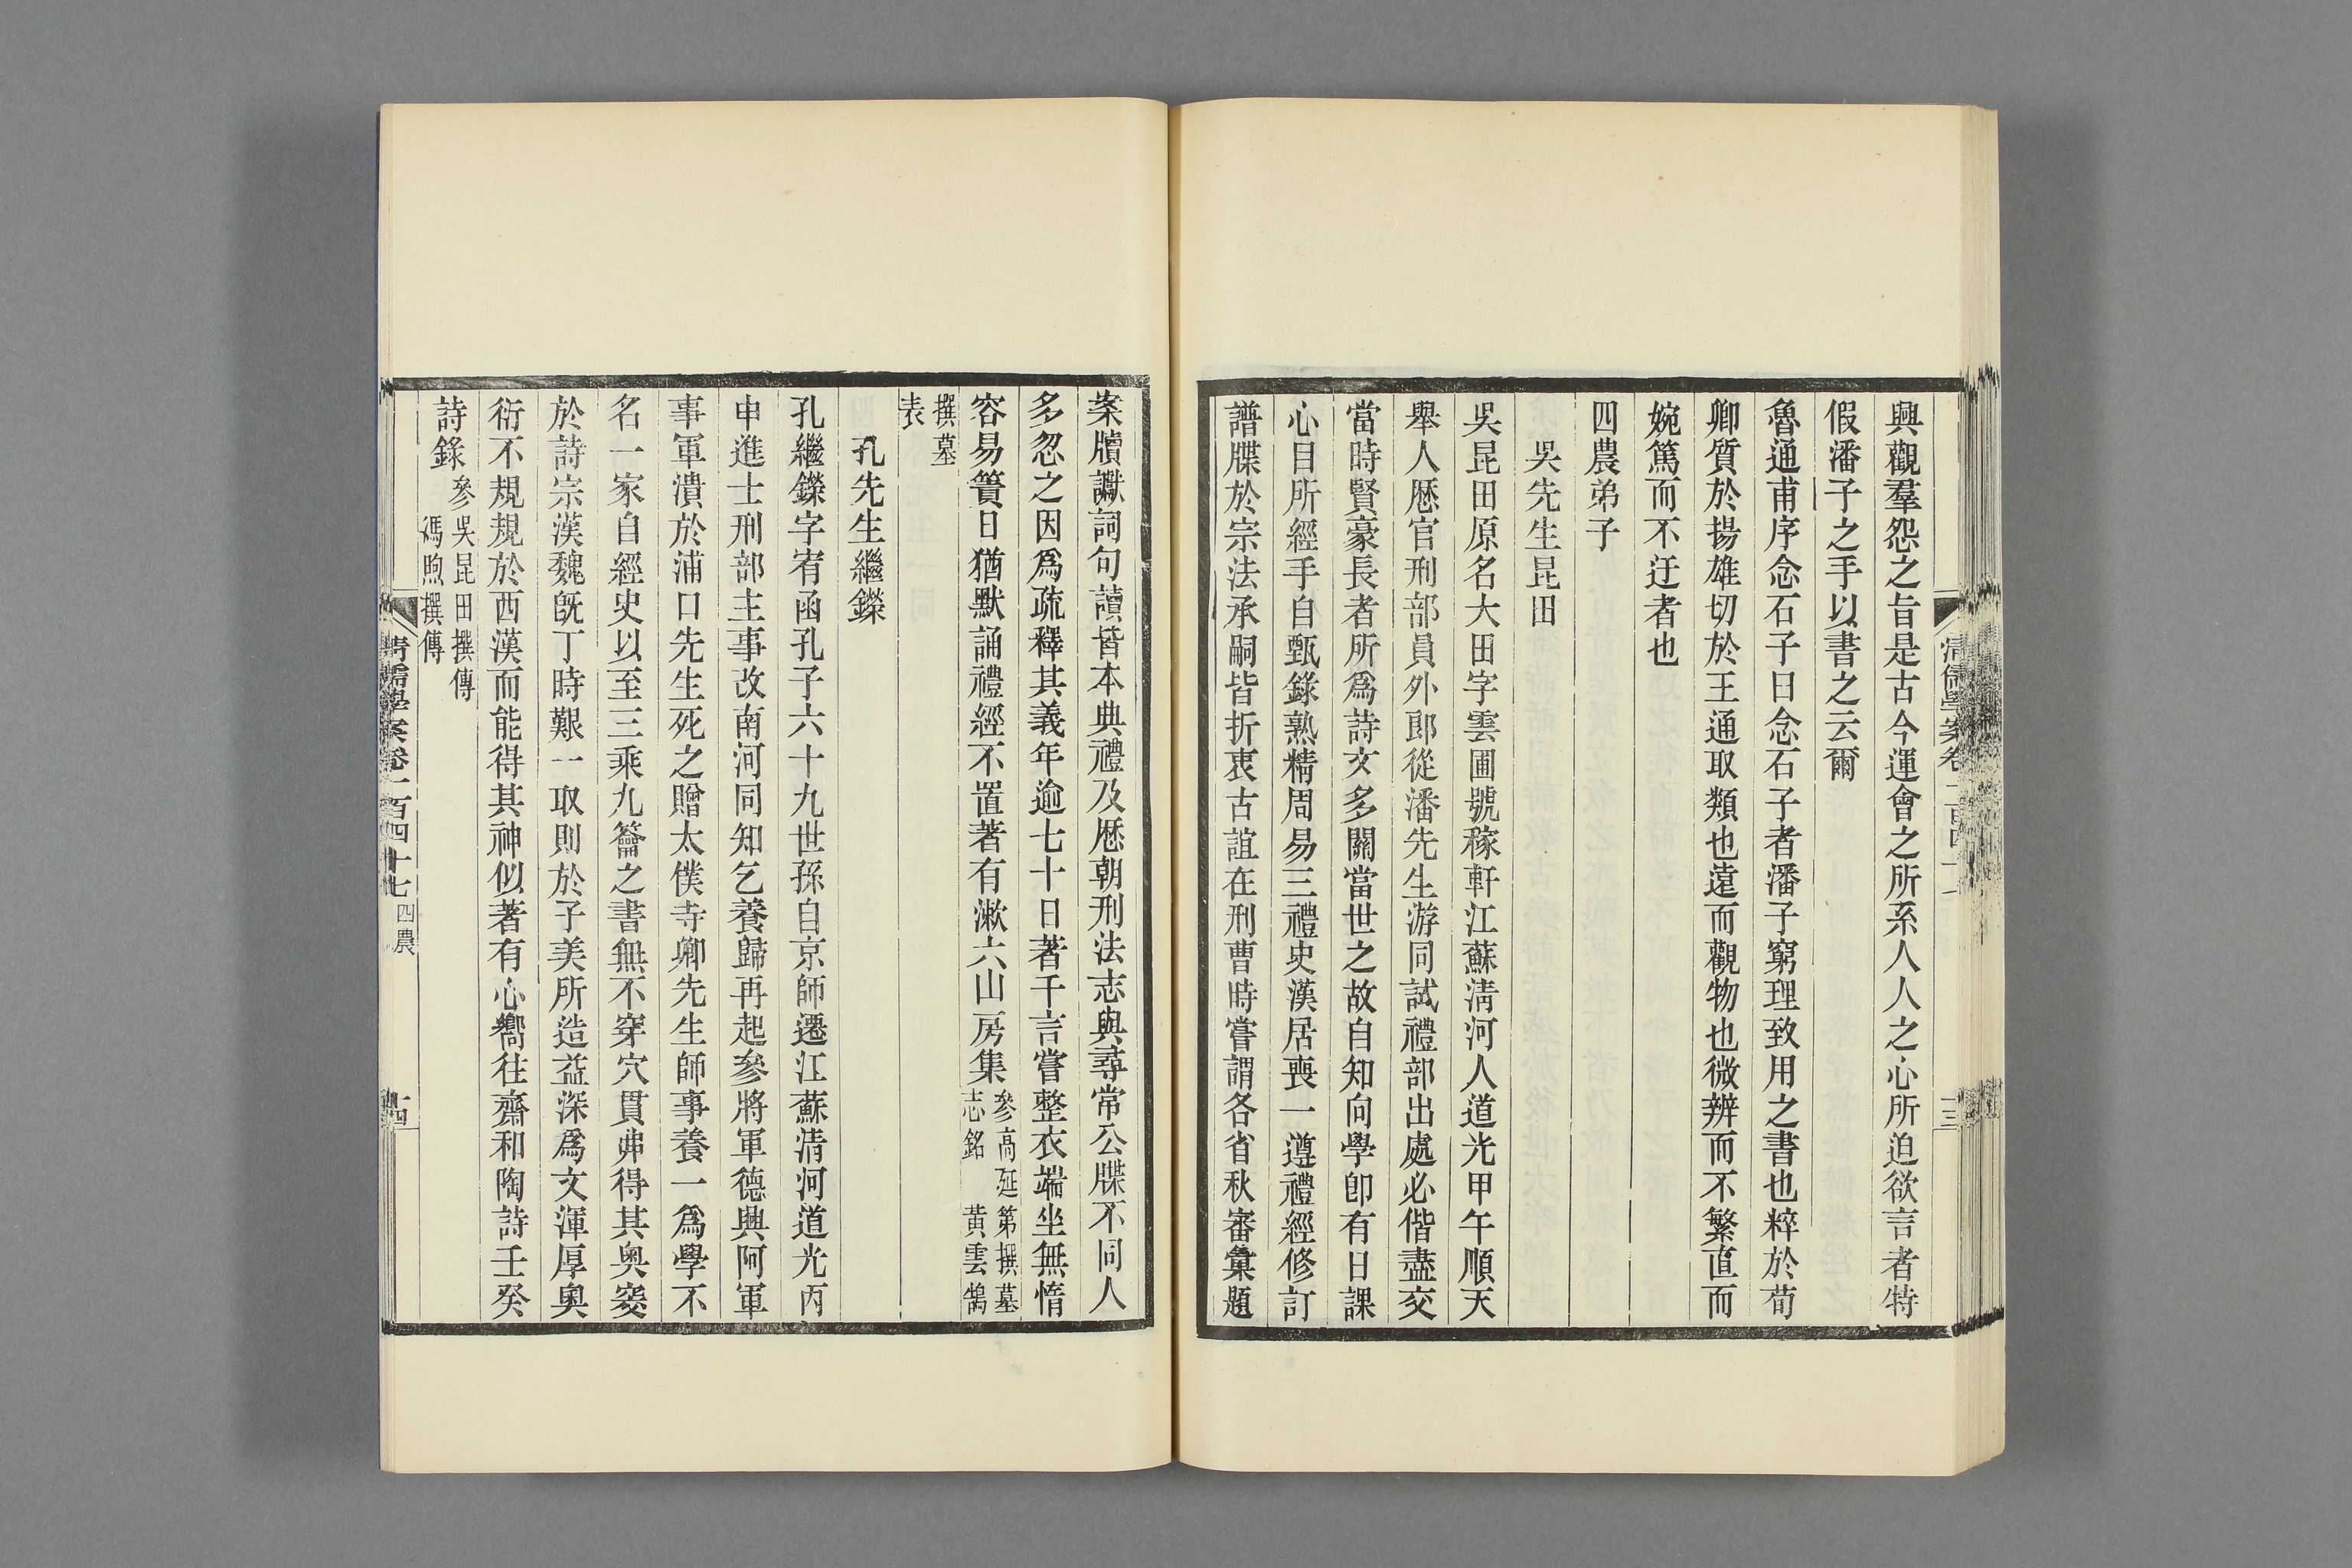 興觀羣怨之旨是古今運會之所系人人之心所迫欲言者特
假潘子之手以書之云爾
魯通甫序念石子曰念石子者潘子窮理致用之書也粹於荀
卿質於揚雄切於王通取類也遠而觀物也微辨而不繁直而
婉篤而不迂者也
四農弟子
吳先生昆田
吳昆田原名大田字雲圃號稼軒江蘇淸河人道光甲午順天
舉人歷官刑部員外郎從潘先生游同試禮部出處必偕盡交
當時賢豪長者所爲詩文多關當世之故自知向學卽有日課
心目所經手自甄錄熟精周易三禮史漢居喪一遵禮經修訂
譜牒於宗法承嗣皆折衷古誼在刑曹時嘗謂各省秋審彙題
案牘讞詞句讀皆本典禮及歷朝刑法志與尋常公牒不同人
多忽之因爲疏釋其義年逾七十日著千言嘗整衣端坐無惰
容易簀日猶默誦禮經不置著有漱六山房集
參高延第撰墓志銘 黃雲鵠撰墓表
孔先生繼鑅
孔繼鑅字宥函孔子六十九世孫自京師遷江蘇淸河道光丙
申進士刑部主事改南河同知乞養歸再起參將軍德興阿軍
事軍潰於浦口先生死之贈太僕寺卿先生師事養一爲學不
名一家自經史以至三乘九籥之書無不穿穴貫弗得其奧窔
於詩宗漢魏旣丁時艱一取則於子美所造益深爲文渾厚奧
衍不規規於西漢而能得其神似著有心嚮往齋和陶詩壬癸
詩錄
參吳昆田撰傳
馮煦撰傳
淸儒學案卷一百四十七 四農
十四